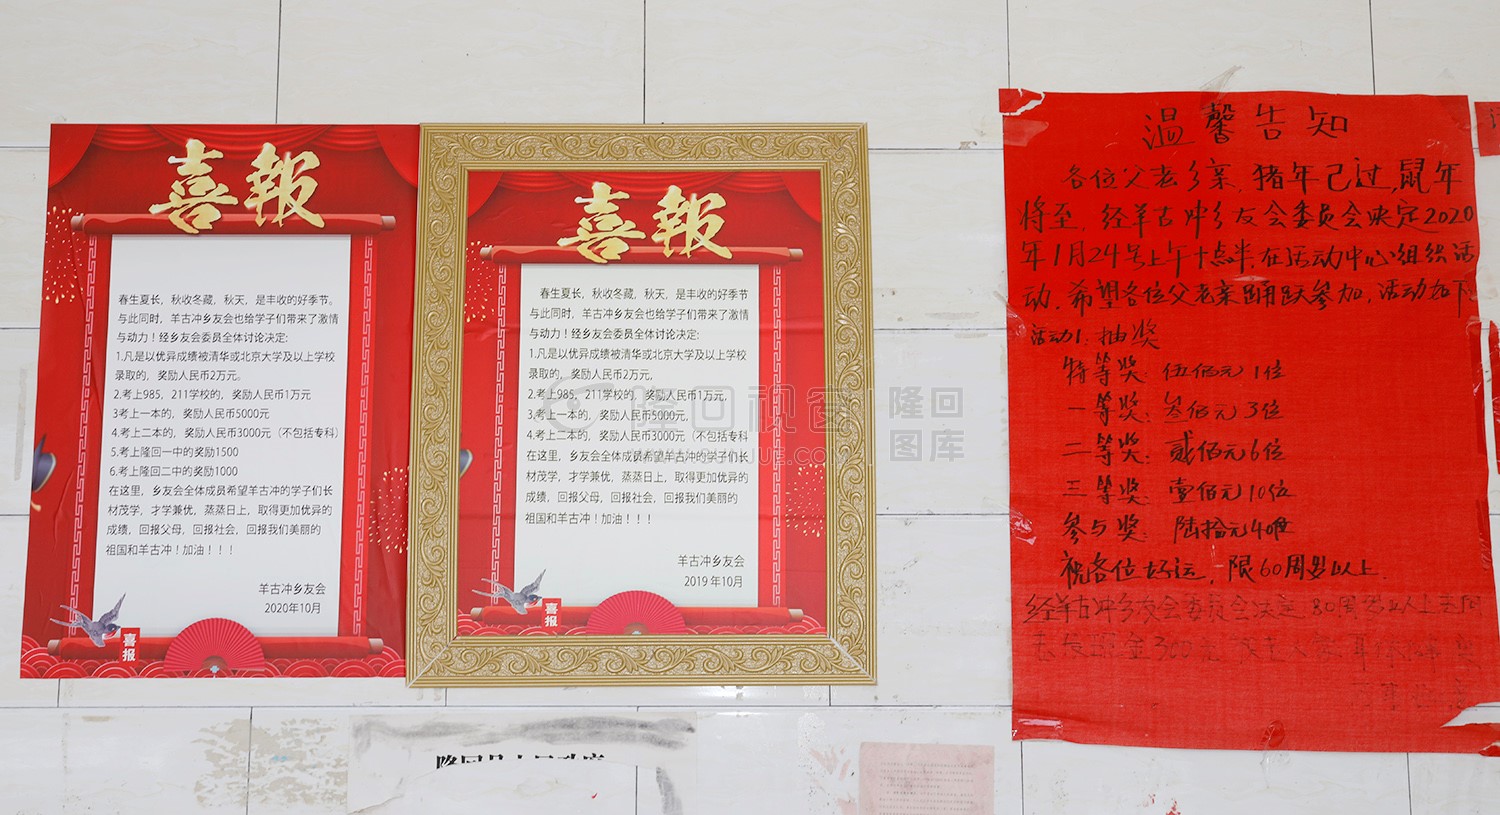 喜報
春生夏长，秋收冬藏，秋天，是丰收的好季节。
与此同时，羊古冲乡友会也给学子们带来了激情
与动力！经乡友会委员全体讨论决定:
1.凡是以优异成绩被清华或北京大学及以上学校
录取的，奖励人民币2万元。
2.考上985，211学校的，奖励人民币1万元
3考上一本的，奖励人民币5000元
4.考上二本的，奖励人民币3000元（不包括专科）
5.考上隆回一中的奖励1500
6.考上隆回二中的奖励1000
在这里，乡友会全体成员希望羊古冲的学子们长
材茂学，才学兼优，蒸蒸日上，取得更加优异的
成绩，回报父母，回报社会，回报我们美丽的
祖国和羊古冲！加油！！！
羊古冲乡友会
2020年10月
喜报
喜報
春生夏长，秋收冬藏，秋天，是丰收的好季节
与此同时，羊古冲乡友会也给学子们带来了激情
与动力！经乡友会委员全体讨论决定:
1.凡是以优异成绩被清华或北京大学及以上学校
录取的，奖励人民币2万元，
2.考上985，211学校的，奖励人民币1万元，
3.考上一本的，奖励人民币5000元，
4.考上二本的，奖励人民币3000元（不包括专科
在这里，乡友会全体成员希望羊古冲的学子们长
材茂学，才学兼优，蒸蒸日上，取得更加优异的
成绩，回报父母，回报社会，回报我们美丽的
祖国和羊古冲！加油！！！
羊古冲乡友会
2019年10月
喜报
温馨告知
各位父老乡亲，猪年己过，鼠年
将至，经羊古冲乡友会委员会决定2020
年1月24号上午十点半，在活动中心组织活
动，希望各位父老亲踊跃参加，活动如下
活动1：抽奖
特等奖：伍佰元1位
一等奖：叁佰元3位
二等奖：贰佰元6位
三等奖：壹佰元10位
参与奖 陆拾元40位
祝各位好运，限60周岁以上.
经羊古冲乡友会委员会决定80周岁以上
金300元
隆回视窗
隆回
图库